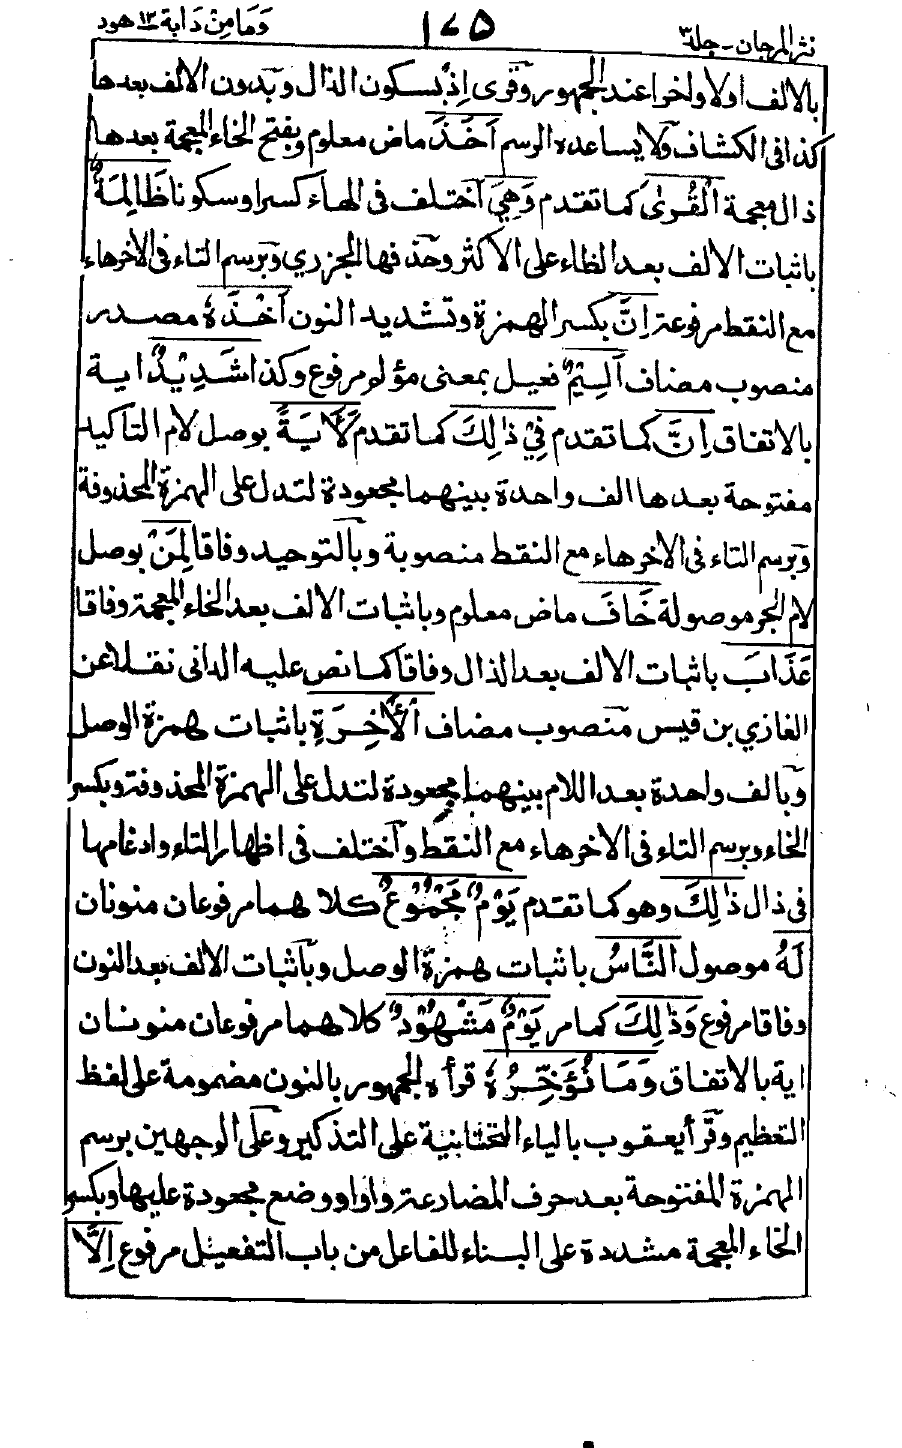 نثر المرجان - جلد ٣ ١٧٥ وَمَا مِنْ دَابة ١٢ هود
بالالف اولا واخرا عند الجمهور وقرى اِذْ بسكون الذال وبدون الالف بعدها
كذا فى الكشاف ولا يساعده الرسم اَخَذَ ماض معلوم وبفتح الخاء المعجمة بعدها
ذال معجمة الْقُرىٰ كما تقدم وَهِيَ اختلف فى الهاء كسرا وسكونا ظَالِمَةٌ
باثبات الالف بعد الظاء على الاكثر وحذفها الجزري وبرسم التاء فى الاخر هاء
مع النقط مرفوعة اِنَّ بكسر الهمزة وتشديد النون اَخْذَهٗ مصدر
منصوب مضاف اَلِيْمٌ فعيل بمعنى مؤلم مرفوع وكذا شَدِيْدٌ اية
بالاتفاق اِنَّ كما تقدم فِيْ ذٰلِكَ كما تقدم لَاٰيَةً بوصل لام التاكيد
مفتوحة بعدها الف واحدة بينهما مجعودة لتدل على الهمزة المحذوفة
وبرسم التاء فى الاخر هاء مع النقط منصوبة وبالتوحيد وفاقا لِمَنْ بوصل
لام الجر موصولة خَافَ ماض معلوم وباثبات الالف بعد الخاء المعجمة وفاقا
عَذَابَ باثبات الالف بعد الذال وفاقا كما نص عليه الدانى نقلا عن
الغازي بن قيس منصوب مضاف الْاٰخِرَةِ باثبات همزة الوصل
وبالف واحدة بعد اللام بينهما مجعودة لتدل على الهمزة المحذوفة وبكسر
الخاء وبرسم التاء فى الاخر هاء مع النقط واختلف فى اظهار التاء وادغامها
فى ذال ذٰلِكَ وهو كما تقدم يَوْمٌ مَّجْمُوْعٌ كلاهما مرفوعان منونان
لَهُ موصول النَّاسُ باثبات همزة الوصل وباثبات الالف بعد النون
وفاقا مرفوع وَذٰلِكَ كما مر يَوْمٌ مَشْهُوْدٌ كلاهما مرفوعان منونان
اية بالاتفاق وَمَا نُؤَخِّرُهٗ قرأه الجمهور بالنون مضمومة على لفظ
التعظيم وقرأ يعقوب بالياء التحتانية على التذكير وعلى الوجهين برسم
الهمزة المفتوحة بعد حرف المضارعة واوا ووضع مجعودة عليها وبكسر
الخاء المعجمة مشددة على البناء للفاعل من باب التفعيل مرفوع اِلَّا